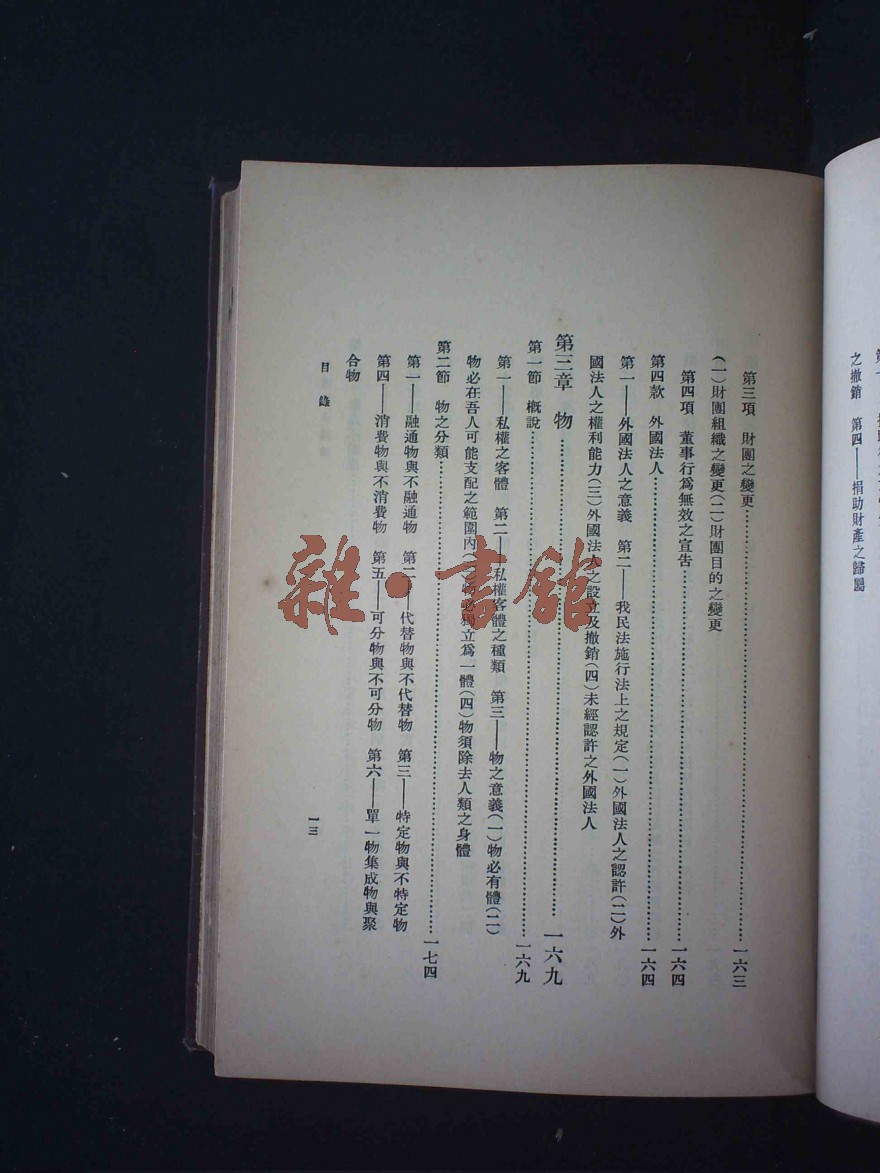 之撤銷　第四——捐助財產之歸屬
第三項　財團之變更……一六三
（一）財團組織之變更（二）財團目的之變更
第四項　董事行爲無效之宣告……一六四
第四款　外國法人……一六四
第一——外國法人之意義　第二——我民法施行法上之規定（一）外國法人之認許（二）外
國法人之權利能力（三）外國法人之設立及撤銷（四）未經認許之外國法人
第三章　物……一六九
第一節　概說……一六九
第一——私權之客體　第二——私權客體之種類　第三——物之意義（一）物必有體（二）
物必在吾人可能支配之範圍內（三）物必獨立爲一體（四）物須除去人類之身體
第二節　物之分類……一七四
第一——融通物與不融通物　第二——代替物與不代替物　第三——特定物與不特定物
第四——消費物與不消費物　第五——可分物與不可分物　第六——單一物集成物與聚
合物
目錄
一三
雜·書館